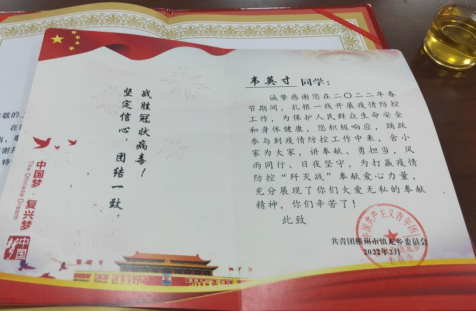 韦英寸 同学：
诚挚感谢您在二〇二二年春
节期间，扎根一线开展疫情防控
工作，为保护人民群众生命安全
和身体健康，您积极响应，踊跃
参与到疫情防控工作中来，舍小
家为大家，讲奉献、勇担当，风
雨同行、日夜坚守，为打赢疫情
防控“歼灭战”奉献爱心力量，
充分展现了你们大爱无私的奉献
精神，你们辛苦了！
此致
2022年2月
战胜冠状病毒！
坚定信心 团结一致，
中国梦·复兴梦
The Chinese Dream
中国